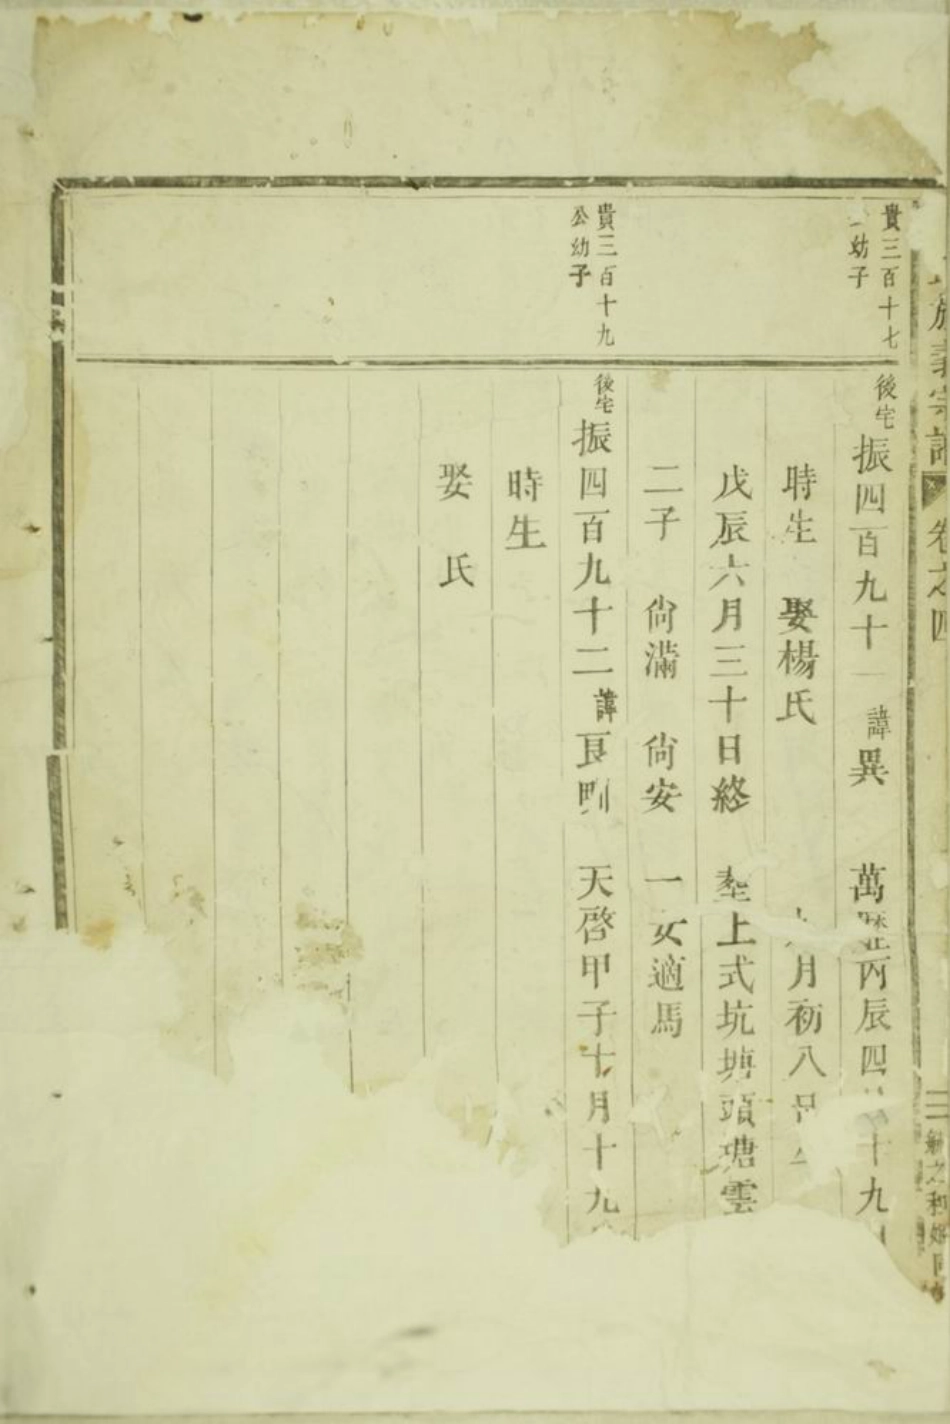 族義宗譜 卷之四
貴三百十七
幼子
後宅 振四百九十一 諱異 萬歷丙辰四 十九
時生 娶楊氏 月初八日
戊辰六月三十日終 塟上式坑塘頭塘雲
二子 尙滿 尙安 一女適馬
貴三百十九
公幼子
後宅 振四百九十二 諱良 天啓甲子七月十九
時生
娶 氏